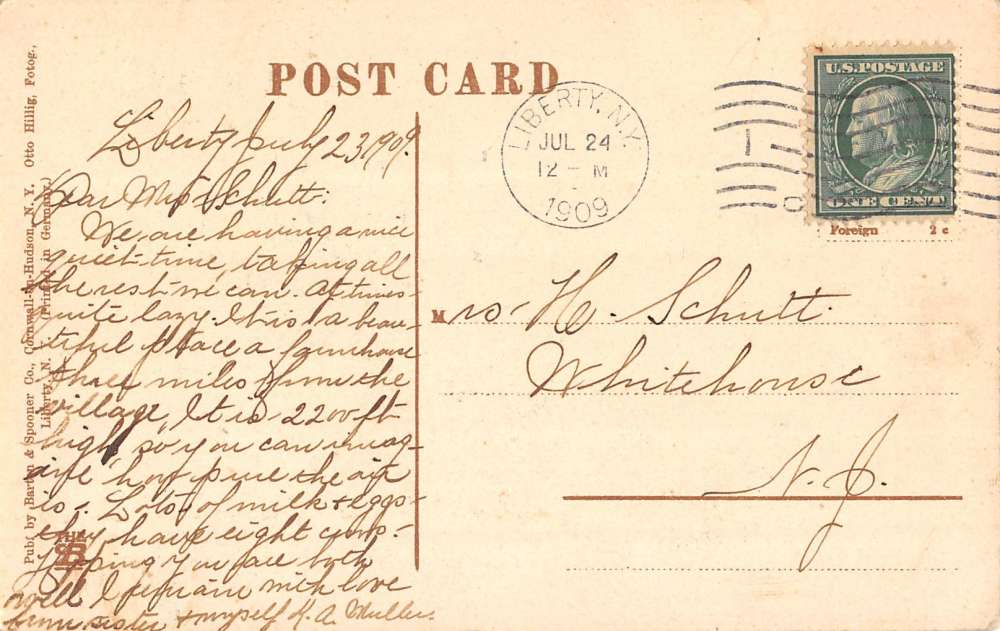 POST CARD
Liberty July 23, 1909.
Dear Mrs Schutt:
We are having a nice
quiet time, taking all
the rest we can. At times
quite lazy. It is a beau-
tiful place a farmhouse
three miles from the
village, It is 2200 ft
high so you can imag-
ine how pure the air
is. Lots of milk & eggs-
they have eight cows-
Hoping you are both
well I remain with love
from sister & myself K. A. Muller.
Pub. by Barton & Spooner Co., Cornwall-on-Hudson, N. Y. Otto Hillig, Fotog.,
Liberty, N. Y. (Printed in Germany.)
THE
SB
LIBERTY, N.Y.
JUL 24
12 - M
1909
U.S. POSTAGE
ONE CENT
Foreign 2 c
Mrs. H. Schutt.
Whitehouse
N. J.